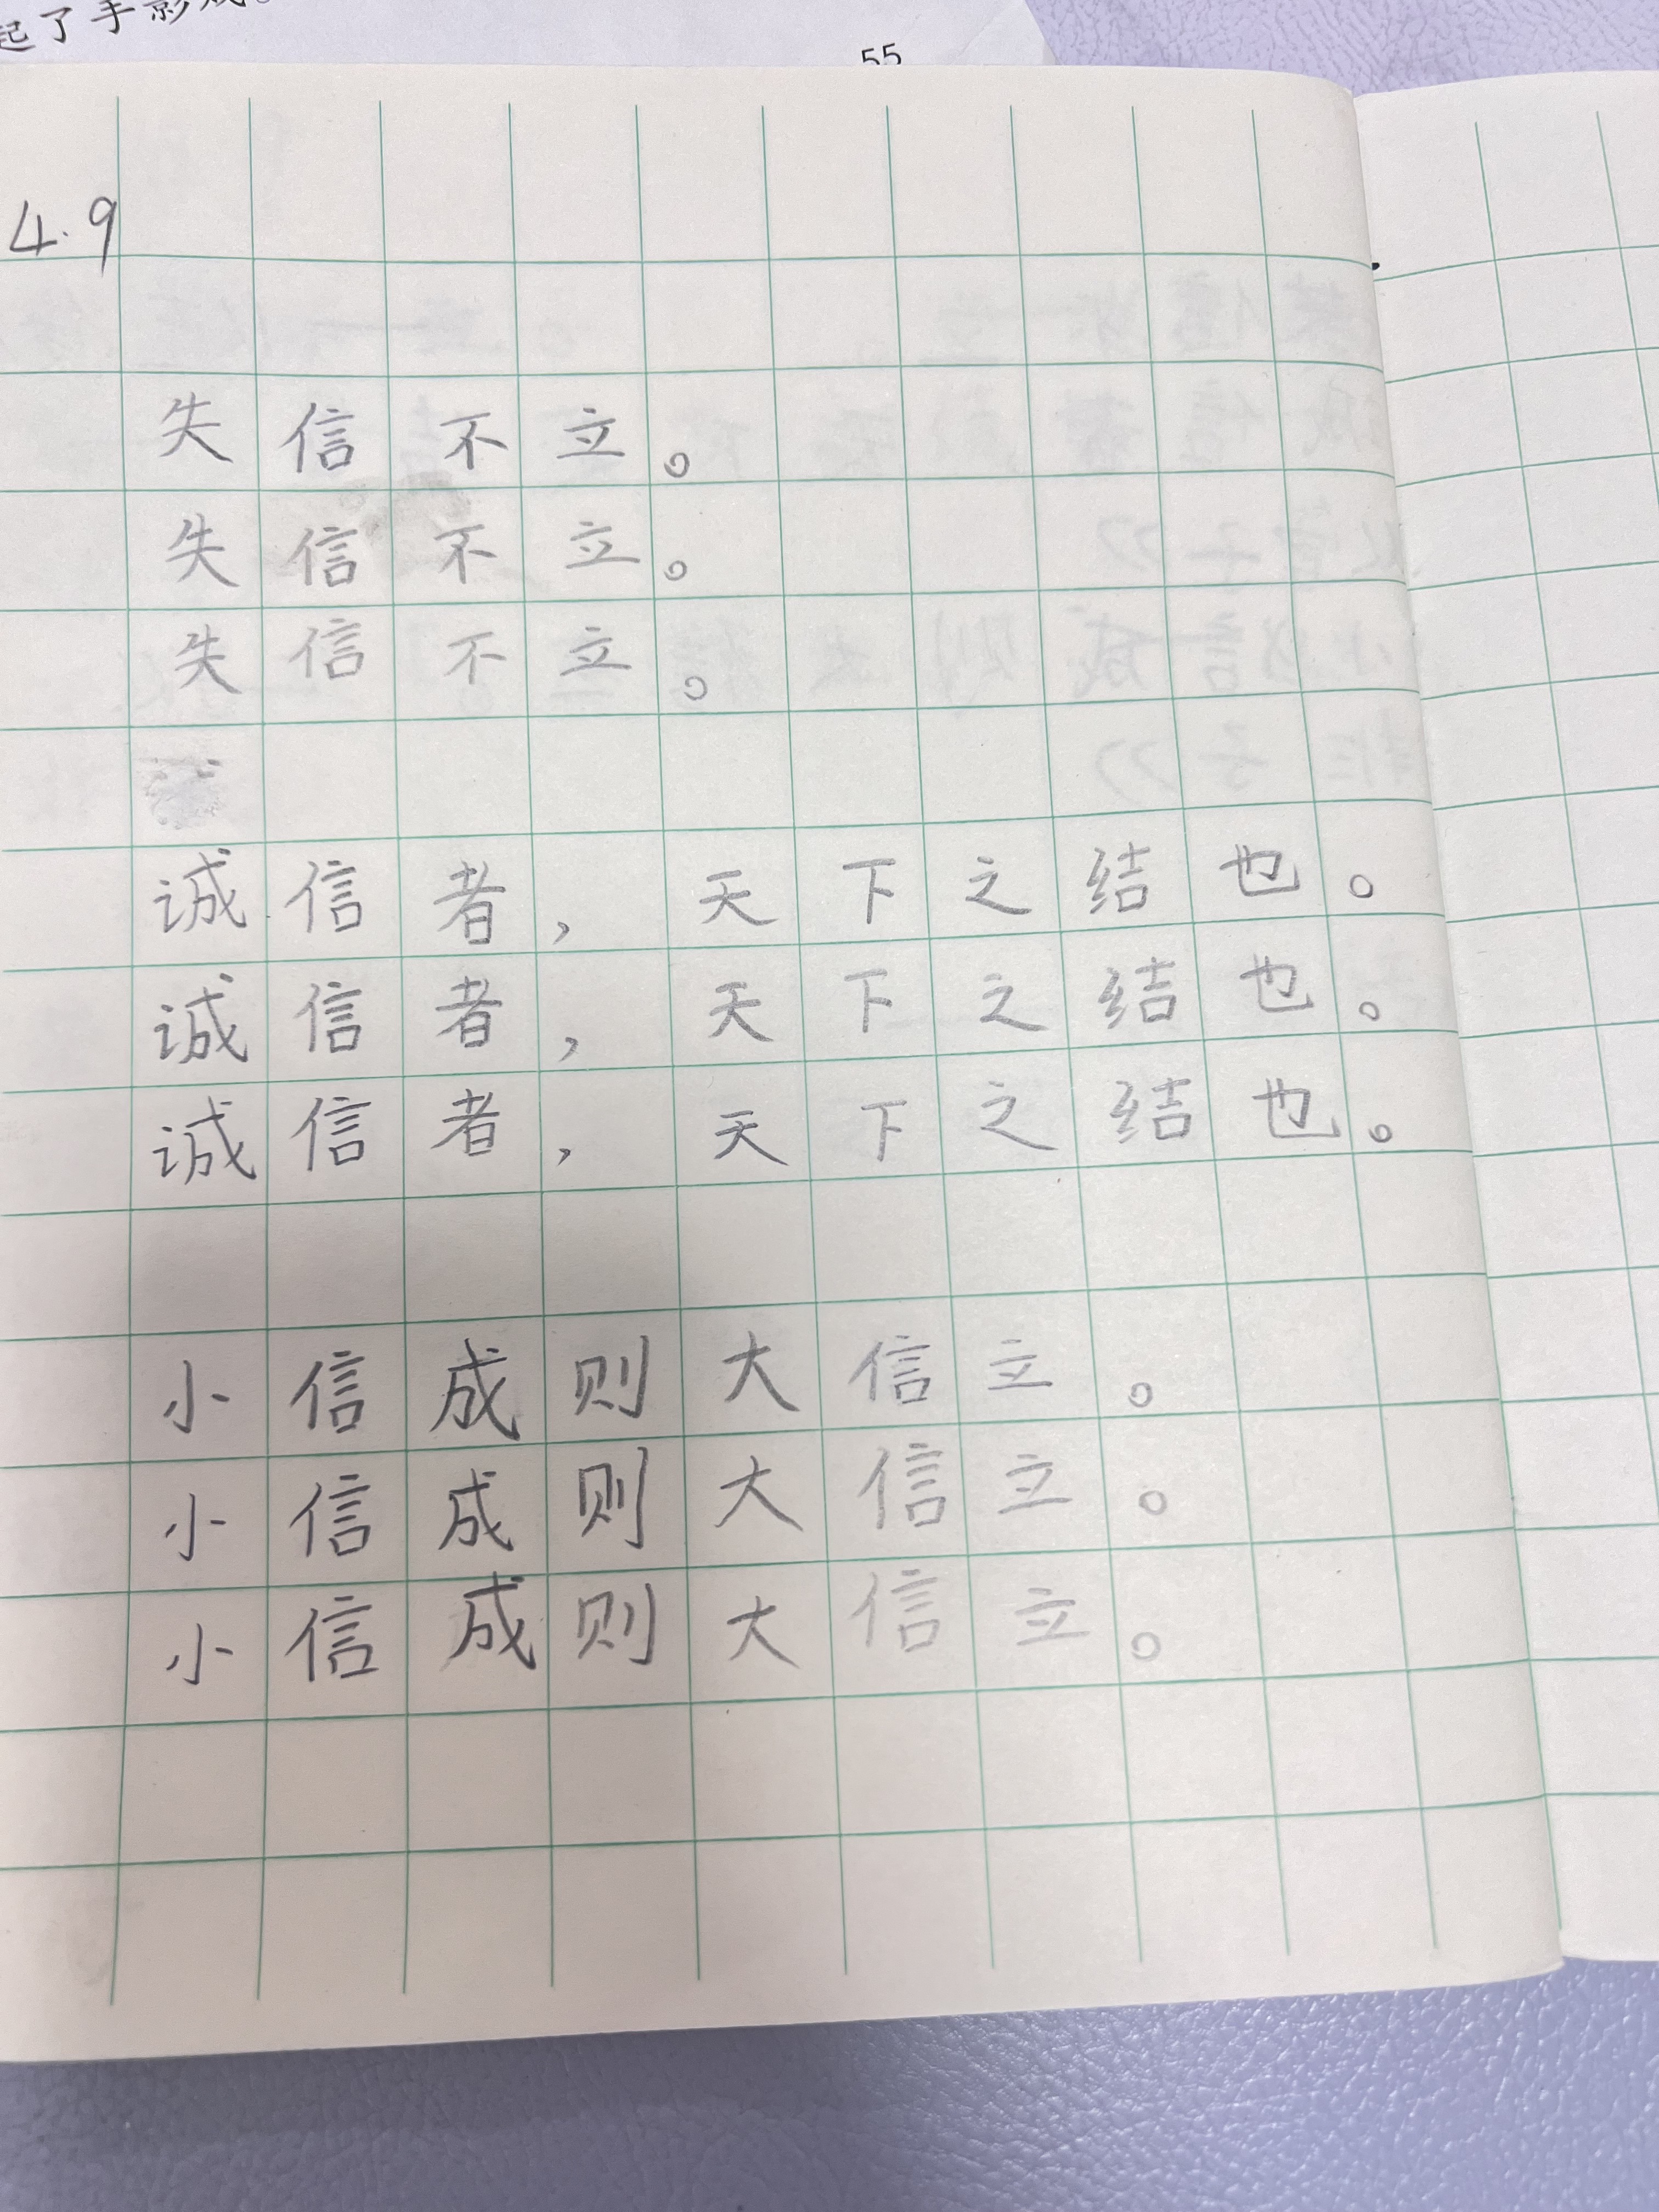 起了手影戏。
55
4.9
失信不立。
失信不立。
失信不立。
诚信者，天下之结也。
诚信者，天下之结也。
诚信者，天下之结也。
小信成则大信立。
小信成则大信立。
小信成则大信立。